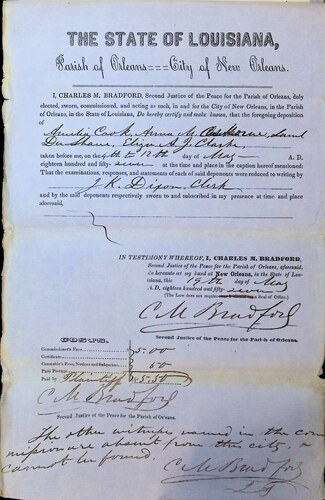 THE STATE OF LOUISIANA,
Parish of Orleans===City of New Orleans.
I, CHARLES M. BRADFORD, Second Justice of the Peace for the Parish of Orleans, duly
elected, sworn, commissioned, and acting as such, in and for the City of New Orleans, in the Parish
of Orleans, in the State of Louisiana, Do hereby certify and make known, that the foregoing deposition
of Amelia Cook, Anna M. Saml
Eliza A. J. Clarke,
taken before me, on the 9th to 12th day of May A. D.
eighteen hundred and fifty-seven at the time and place in the caption hereof mentioned:
That the examinations, responses, and statements of each of said deponents were reduced to writing by
J. K. Dixon, Clerk
and by the said deponents respectively sworn to and subscribed in my presence at time and place
aforesaid,
IN TESTIMONY WHEREOF, I, CHARLES M. BRADFORD,
Second Justice of the Peace for the Parish of Orleans, aforesaid,
do hereunto set my hand at New Orleans, in the State of Lou-
isiana, this 19th day of May
A. D. eighteen hundred and fifty-seven
(The Law does not require a Seal of Office.)
C M Bradford
Second Justice of the Peace for the Parish of Orleans.
COSTS.
Commissioner's Fees, 5.00
Certificate,
Constable's Fees, Notices and Subpœnas, 50
Paid Postage,
Paid by Plaintiff $5.50
C M Bradford
Second Justice of the Peace for the Parish of Orleans.
The other witnesses named in the com
mission are absent from the city &
cannot be found.
C M Bradford